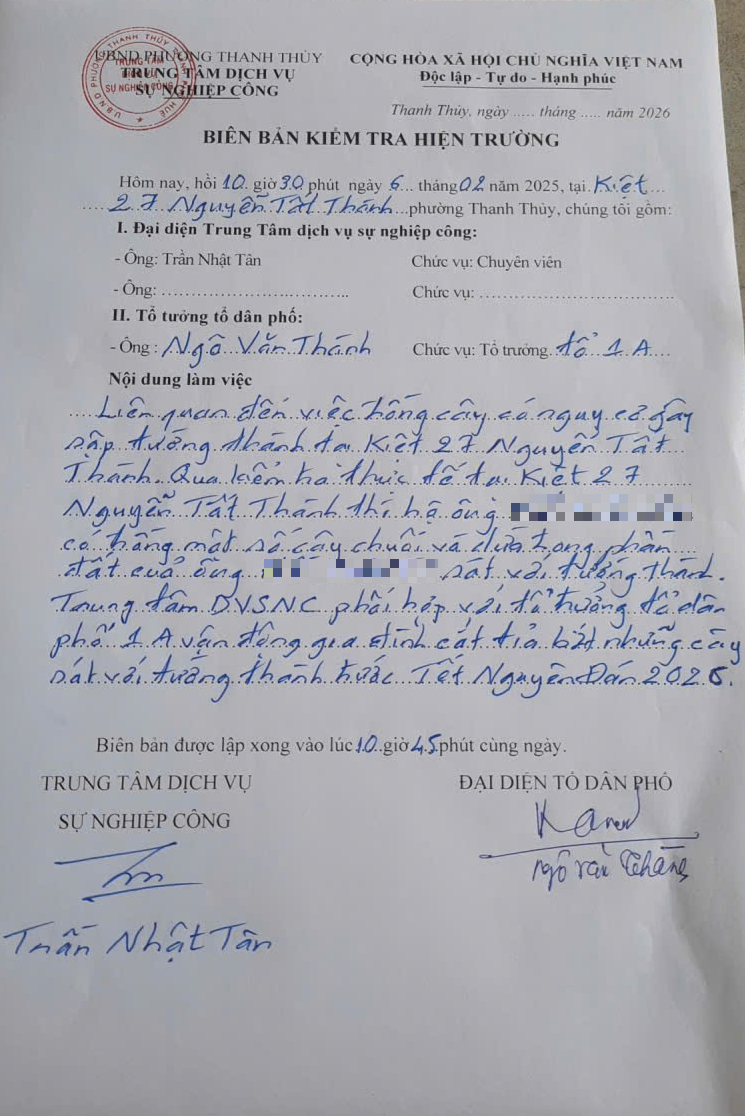 UBND PHƯỜNG THANH THỦY
TRUNG TÂM DỊCH VỤ
SỰ NGHIỆP CÔNG
CỘNG HÒA XÃ HỘI CHỦ NGHĨA VIỆT NAM
Độc lập - Tự do - Hạnh phúc
Thanh Thủy, ngày ..... tháng ..... năm 2026
BIÊN BẢN KIỂM TRA HIỆN TRƯỜNG
Hôm nay, hồi 10 giờ 30 phút ngày 6 tháng 02 năm 2025, tại Kiệt
27 Nguyễn Tất Thành phường Thanh Thủy, chúng tôi gồm:
I. Đại diện Trung Tâm dịch vụ sự nghiệp công:
- Ông: Trần Nhật Tân Chức vụ: Chuyên viên
- Ông: ................................ Chức vụ: ................................
II. Tổ tưởng tổ dân phố:
- Ông : Ngô Văn Thánh Chức vụ: Tổ trưởng tổ 1A
Nội dung làm việc
Liên quan đến việc trồng cây có nguy cơ gây
sập tường thành tại Kiệt 27 Nguyễn Tất
Thành. Qua kiểm tra thực tế tại Kiệt 27
Nguyễn Tất Thành thì hộ ông
có trồng một số cây chuối và dừa trong phần
đất của ông sát với tường thành.
Trung tâm DVSNC phối hợp với tổ trưởng tổ dân
phố 1A vận động gia đình cắt tỉa bớt những cây
sát với tường thành trước Tết Nguyên Đán 2026.
Biên bản được lập xong vào lúc 10 giờ 45 phút cùng ngày.
TRUNG TÂM DỊCH VỤ
SỰ NGHIỆP CÔNG
ĐẠI DIỆN TỔ DÂN PHỐ
Ngô Văn
Trần Nhật Tân